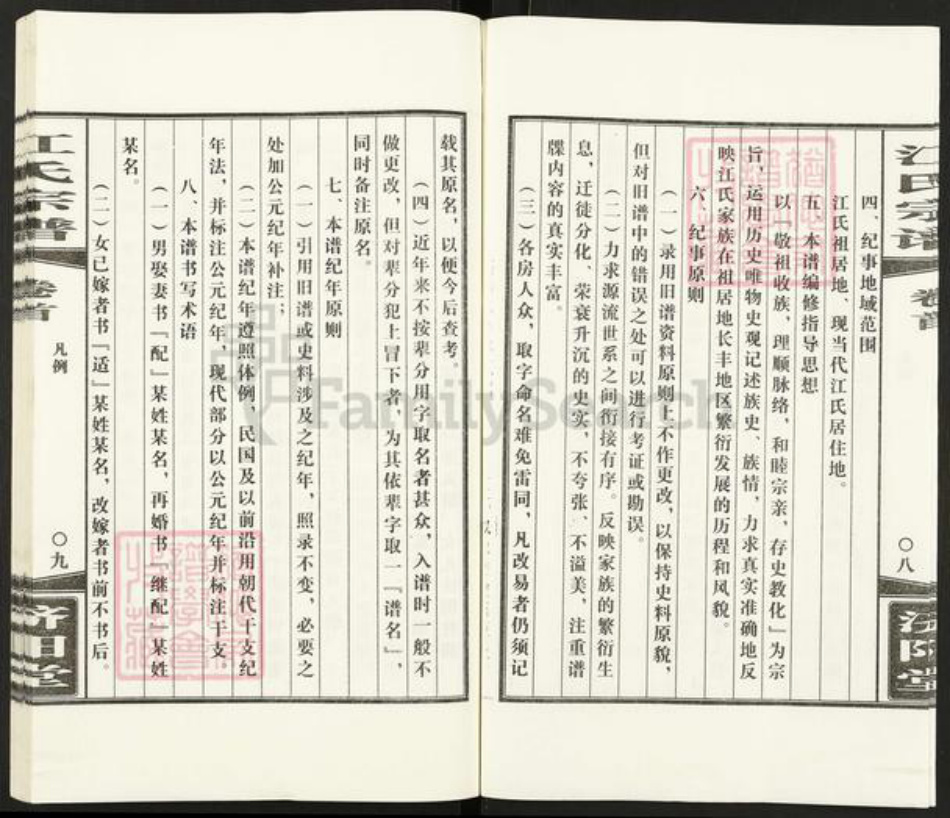 江氏宗谱
卷首
〇八
济阳堂
四、纪事地域范围
江氏祖居地、现当代江氏居住地。
五、本谱编修指导思想
以『敬祖收族，理顺脉络，和睦宗亲，存史教化』为宗
旨，运用历史唯物史观记述族史、族情，力求真实准确地反
映江氏家族在祖居地长丰地区繁衍发展的历程和风貌。
六、纪事原则
（一）录用旧谱资料原则上不作更改，以保持史料原貌，
但对旧谱中的错误之处可以进行考证或勘误。
（二）力求源流世系之间衔接有序。反映家族的繁衍生
息，迁徒分化、荣衰升沉的史实，不夸张、不溢美，注重谱
牒内容的真实丰富。
（三）各房人众，取字命名难免雷同，凡改易者仍须记
载其原名，以便今后查考。
（四）近年来不按辈分用字取名者甚众，入谱时一般不
做更改，但对辈分犯上冒下者，为其依辈字取一『谱名』，
同时备注原名。
七、本谱纪年原则
（一）引用旧谱或史料涉及之纪年，照录不变，必要之
处加公元纪年补注；
（二）本谱纪年遵照体例，民国及以前沿用朝代干支纪
年法，并标注公元纪年，现代部分以公元纪年并标注干支。
八、本谱书写术语
（一）男娶妻书『配』某姓某名，再婚书『继配』某姓
某名。
（二）女已嫁者书『适』某姓某名，改嫁者书前不书后。
江氏宗谱
卷首
凡例
〇九
济阳堂
FamilySearch